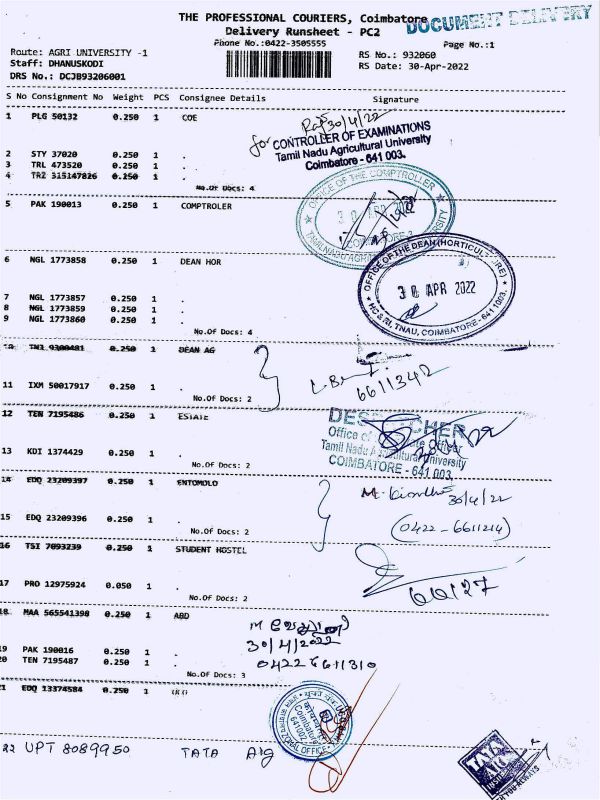 THE PROFESSIONAL COURIERS, Coimbatore
DOCUMENT DELIVERY
Delivery Runsheet - PC2
Phone No.:0422-3505555
Page No.:1
Route: AGRI UNIVERSITY -1
RS No.: 932060
Staff: DHANUSKODI
RS Date: 30-Apr-2022
DRS No.: DCJB93206001
S No Consignment No Weight PCS Consignee Details Signature
1 PLG 50132 0.250 1 COE
30/4/22
for CONTROLLER OF EXAMINATIONS
Tamil Nadu Agricultural University
Coimbatore - 641 003.
2 STY 37020 0.250 1 .
3 TRL 473520 0.250 1 .
4 TRZ 315147826 0.250 1 .
No.Of Docs: 4
OFFICE OF THE COMPTROLLER
30 APR 2022
5 PAK 190013 0.250 1 COMPTROLER
6 NGL 1773858 0.250 1 DEAN HOR
OFFICE OF THE DEAN (HORTICULTURE)
30 APR 2022
HC & RI, TNAU, COIMBATORE - 641 003.
7 NGL 1773857 0.250 1 .
8 NGL 1773859 0.250 1 .
9 NGL 1773860 0.250 1 .
No.Of Docs: 4
10 0.250 1 DEAN AG
11 IXM 50017917 0.250 1 .
6611342
No.Of Docs: 2
12 TEN 7195486 0.250 1 ESTATE
DESPATCHER
Office of Estate Officer
Tamil Nadu Agricultural University
COIMBATORE - 641 003.
13 KDI 1374429 0.250 1 .
No.Of Docs: 2
14 EDQ 23209397 0.250 1 ENTOMOLO
30/4/22
15 EDQ 23209396 0.250 1 .
(0422-6611214)
No.Of Docs: 2
16 TSI 7093239 0.250 1 STUDENT HOSTEL
17 PRO 12975924 0.050 1 .
66127
No.Of Docs: 2
18 MAA 565541398 0.250 1 ABD
30/4/2022
0422 6611310
19 PAK 190016 0.250 1 .
20 TEN 7195487 0.250 1 .
No.Of Docs: 3
21 EDQ 13374584 0.250 1
Coimbatore
641002
ZONAL OFFICE
22 UPT 8089950 TATA AIG